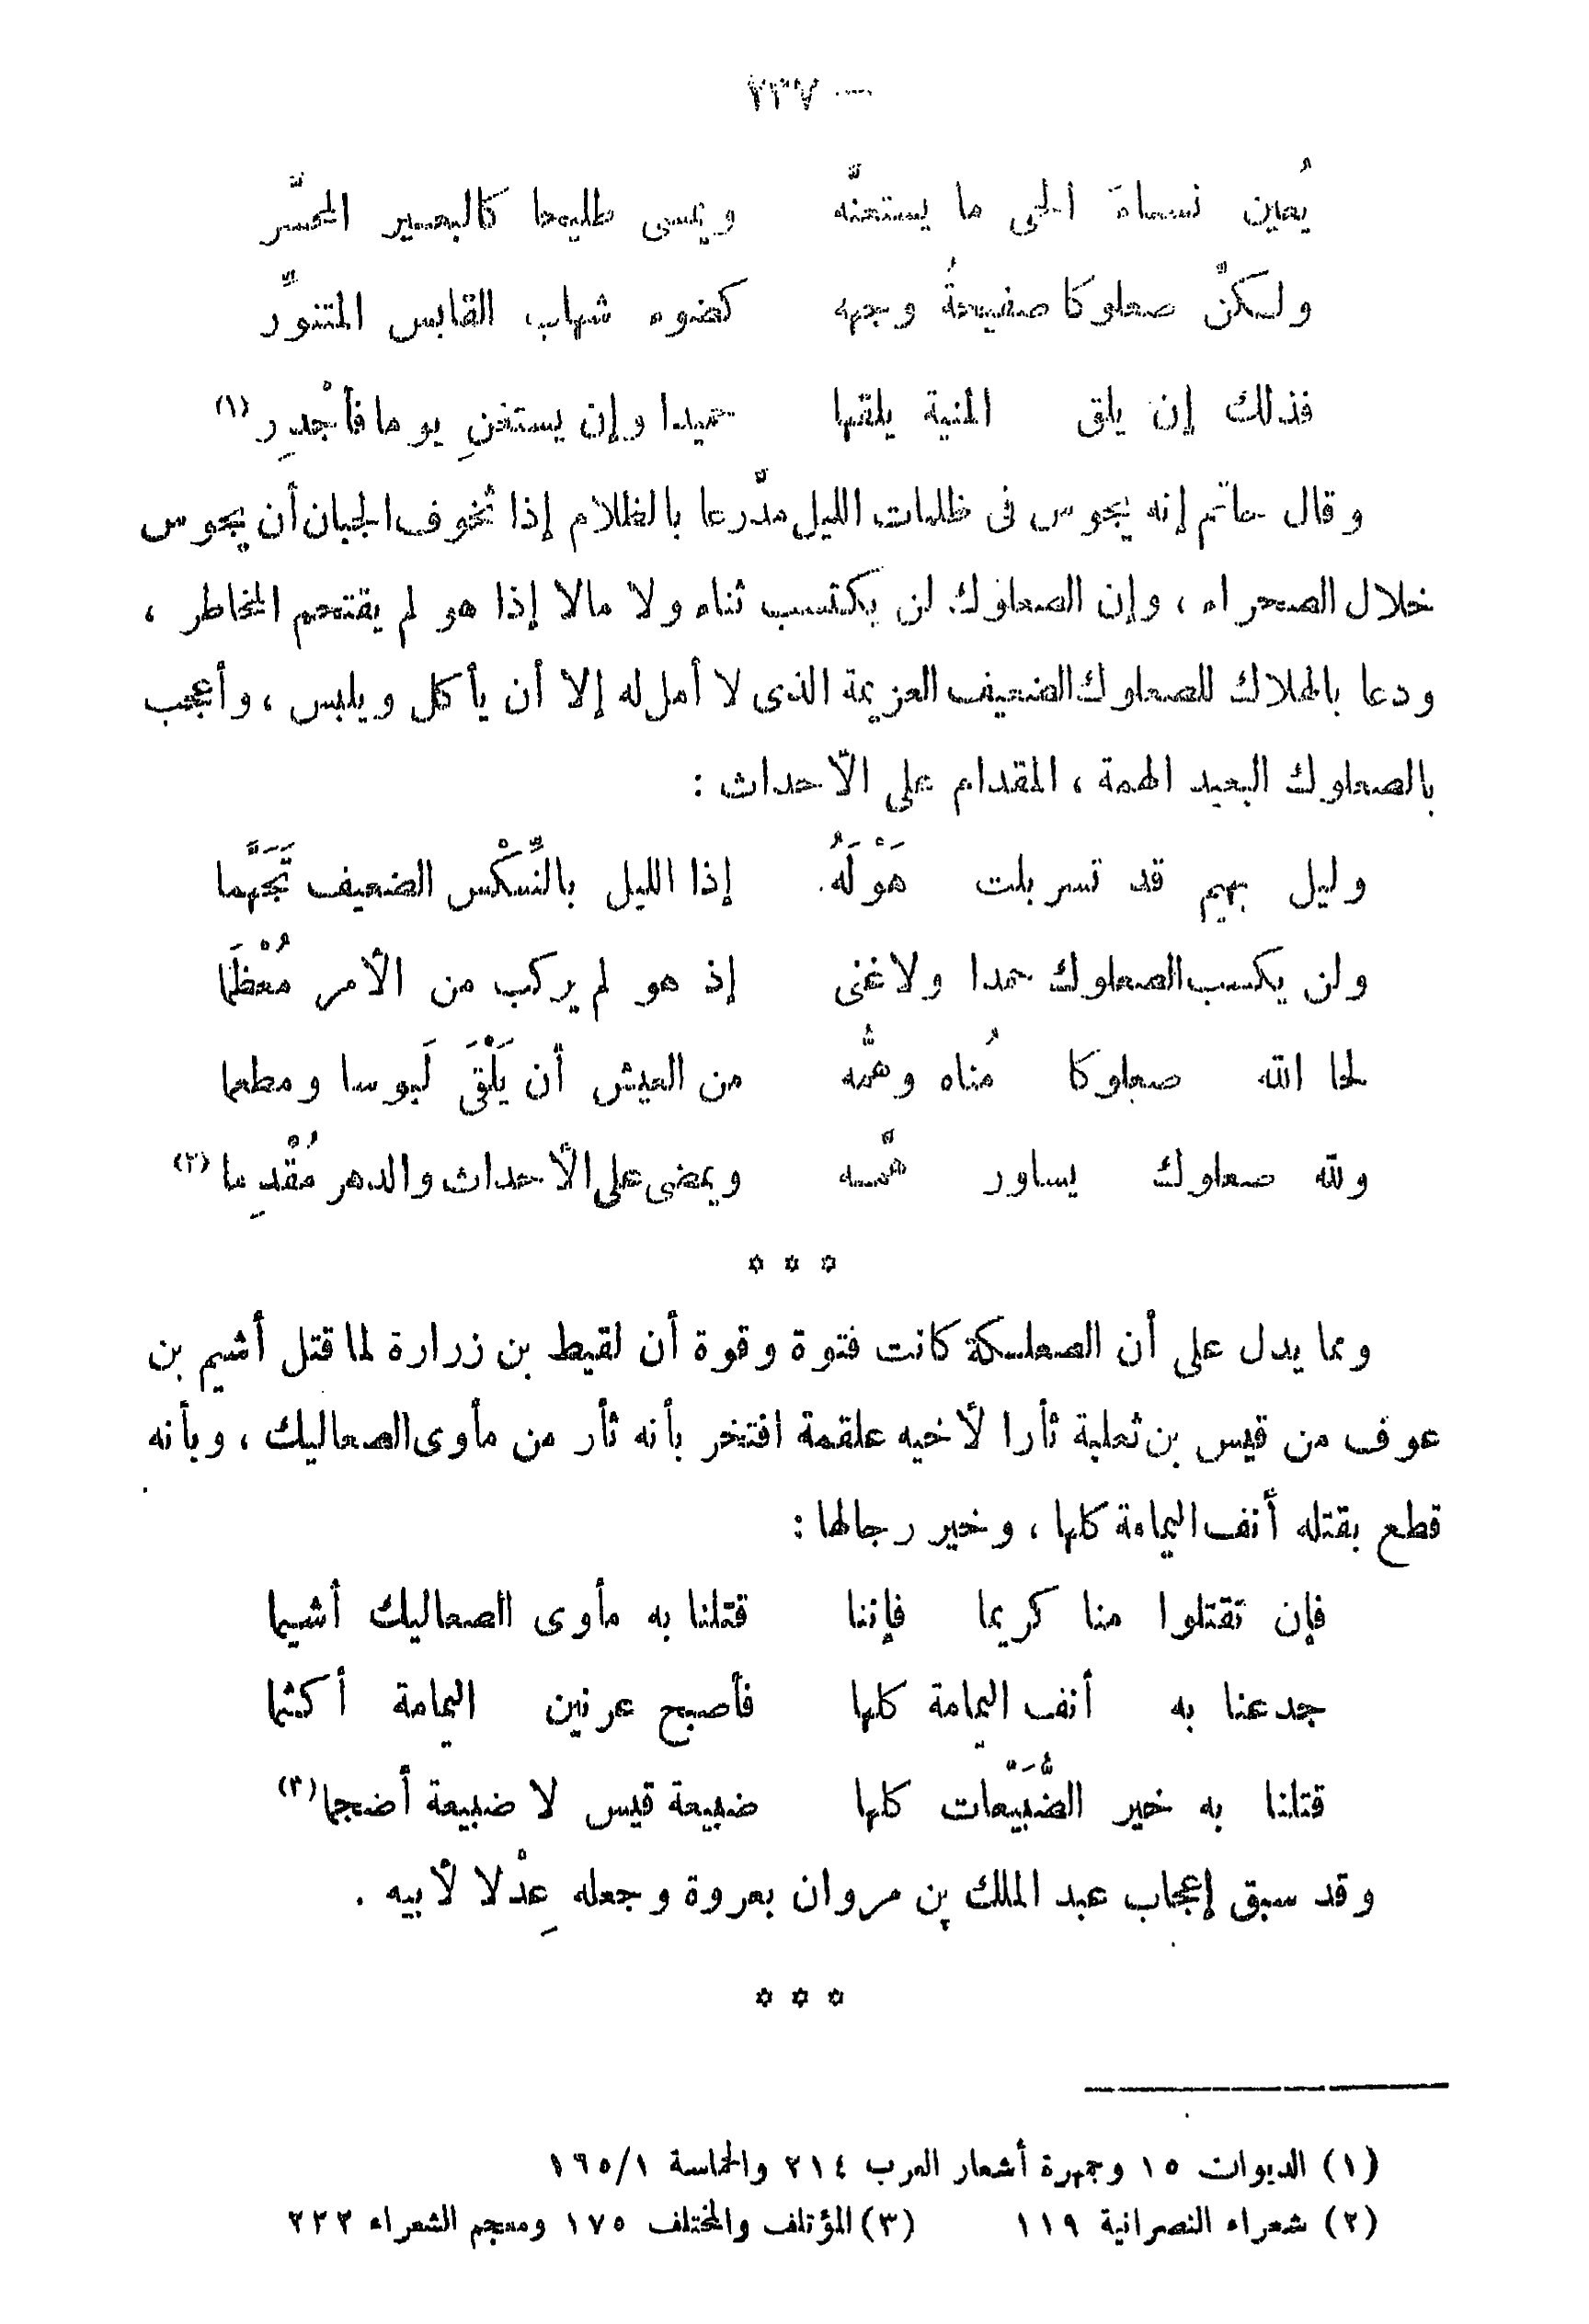 — ٢٣٧
يُعين نساءَ الحى ما يستعنَّه ويمسى طليحا كالبعير المحسَّر
ولكنّ صعلوكا صفيحةُ وجهه كضوء شهاب القابس المتنوِّر
فذلك إن يلق المنية يلقها حميدا وإن يستغنِ يوما فأجْدِر (١)
وقال حاتم إنه يجوس فى ظلمات الليل مدّرعا بالظلام إذا تخوف الجبان أن يجوس
خلال الصحراء ، وإن الصعلوك لن يكتسب ثناء ولا مالا إذا هو لم يقتحم المخاطر ،
ودعا بالهلاك للصعلوك الضعيف العزيمة الذى لا أمل له إلا أن يأكل ويلبس ، وأعجب
بالصعلوك البعيد الهمة ، المقدام على الأحداث :
وليل بهيم قد تسربلت هَوْلَهُ إذا الليل بالنِّكْس الضعيف تَجَهَّما
ولن يكسب الصعلوك حمدا ولا غنى إذ هو لم يركب من الأمر مُعْظَما
لحا الله صعلوكا مُناه وهمُّه من العيش أن يَلْقَى لَبوسا ومطعما
ولله صعلوك يساور همَّه ويمضى على الأحداث والدهر مُقْدِما (٢)
* * *
ومما يدل على أن الصعلكة كانت فتوة وقوة أن لقيط بن زرارة لما قتل أشيم بن
عوف من قيس بن ثعلبة ثأرا لأخيه علقمة افتخر بأنه ثأر من مأوى الصعاليك ، وبأنه
قطع بقتله أنف اليمامة كلها ، وخير رجالها :
فإن تقتلوا منا كريما فإننا قتلنا به مأوى الصعاليك أشيما
جدعنا به أنف اليمامة كلها فأصبح عرنين اليمامة أكشما
قتلنا به خير الضُّبَيْعات كلها ضبيعة قيس لا ضبيعة أضجما (٣)
وقد سبق إعجاب عبد الملك بن مروان بعروة وجعله عِدْلا لأبيه .
* * *
(١) الديوان ١٥ وجمهرة أشعار العرب ٢١٤ والحماسة ١/١٦٥
(٢) شعراء النصرانية ١١٩ (٣) المؤتلف والمختلف ١٧٥ ومعجم الشعراء ٢٢٢